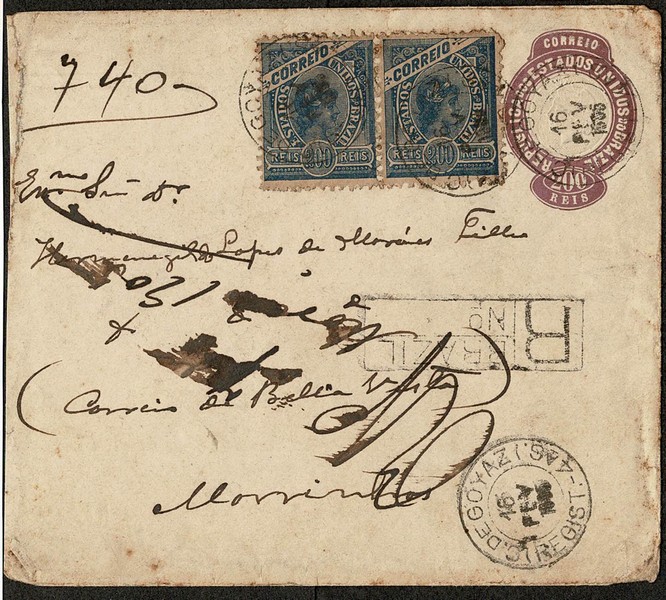 740
CORREIO
ESTADOS UNIDOS DO BRAZIL
200
REIS REIS
CORREIO
ESTADOS UNIDOS DO BRAZIL
200
REIS REIS
CORREIO
ESTADOS UNIDOS DO BRAZIL
200
REIS
16
FEV
Exmo Snr Dr.
Hermenegildo Lopes de Moraes Filho
R
No
BRAZIL
(Correio de Bella Vista)
Morrinhos
C. DE GOYAZ (REGIST.-4AS.)
16
FEV